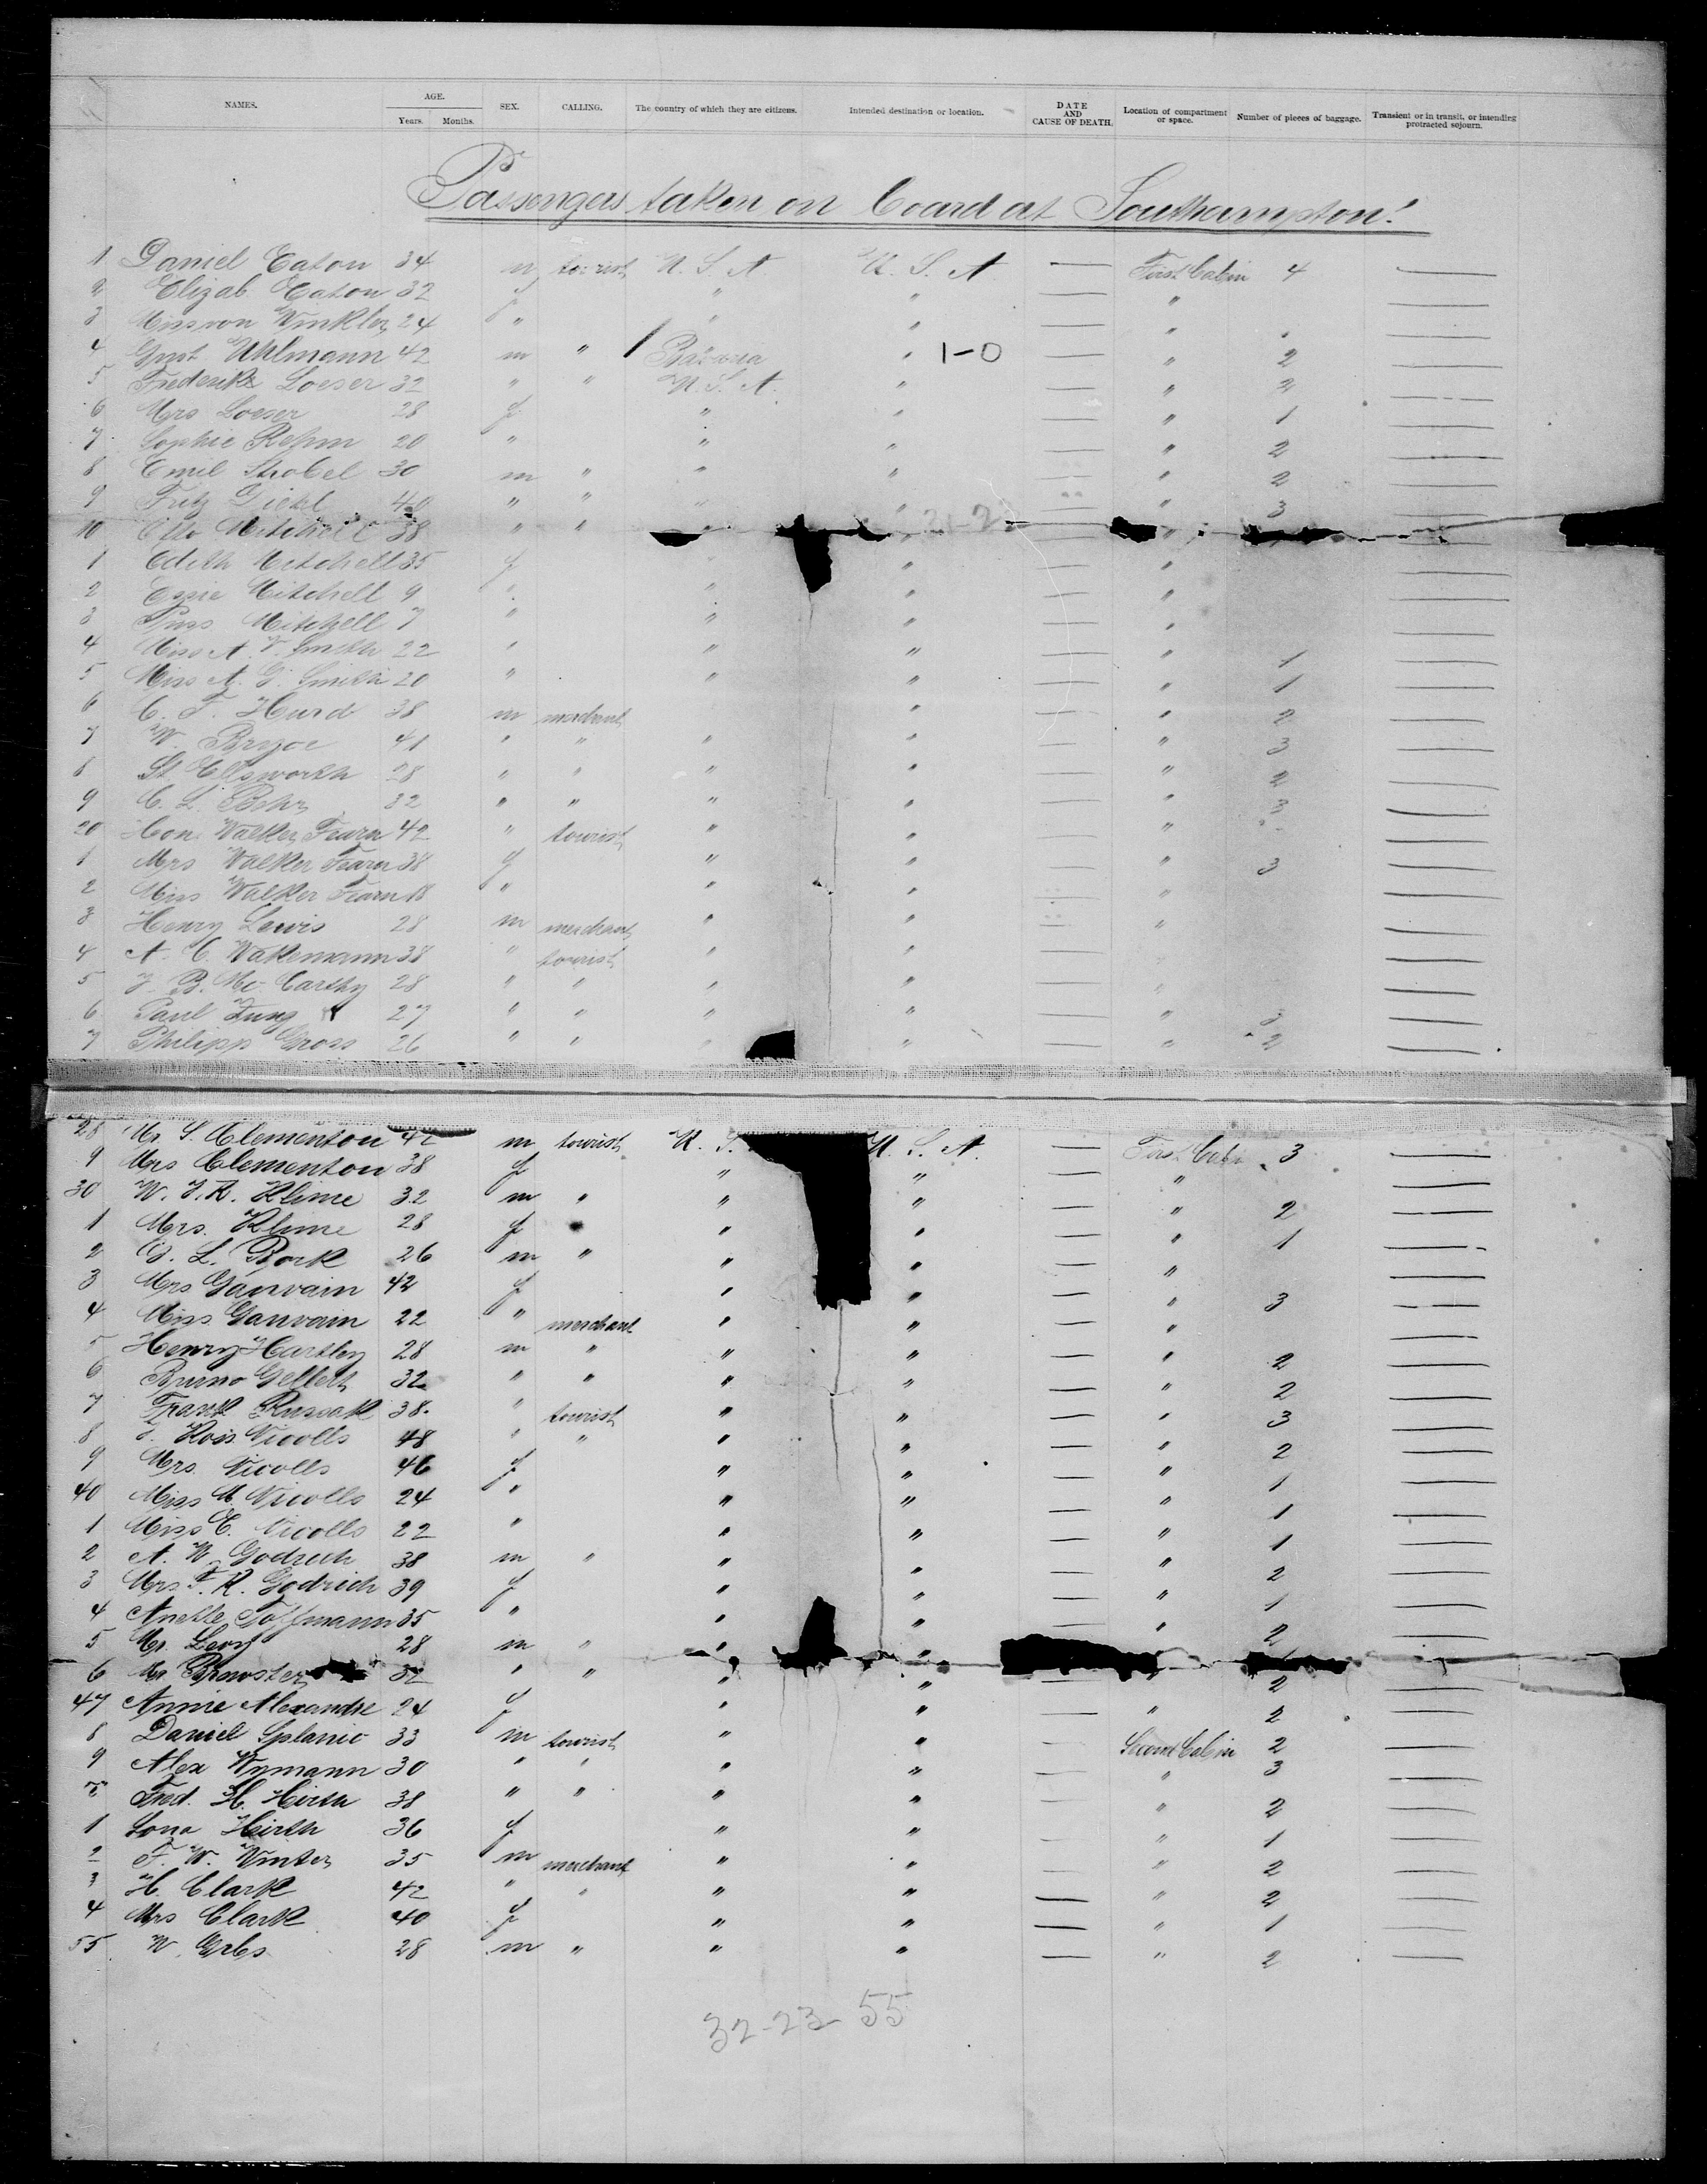 NAMES. AGE. Years. Months. SEX. CALLING. The country of which they are citizens. Intended destination or location. DATE AND CAUSE OF DEATH. Location of compartment or space. Number of pieces of baggage. Transient or in transit, or intending protracted sojourn.
Passengers taken on board at Southampton!
1 Daniel Eaton 34 m tourist U. S. A. U. S. A — First Cabin 4 —
2 Elizab. Eaton 32 f " " — " —
3 Miss von Winkler 24 " " " — " —
4 Gust. Uhlmann 42 m " Bavaria " 1-0 — " 2 —
5 Frederik Loeser 32 " " U. S. A. " — " 2 —
6 Mrs Loeser 28 f " " — " 1 —
7 Sophie Rehm 20 " " " — " 2 —
8 Emil Strobel 30 m " " " — " 2 —
9 Fritz Diehl 40 " " " " — " 3 —
10 Otto Mitchell 38 " " " " — " —
1 Edith Mitchell 35 f " — " —
2 Essie Mitchell 9 " " " — " —
3 Puss Mitchell 7 " " " — " —
4 Miss A. V. Smith 22 " " " — " 1 —
5 Miss A. G. Smith 20 " " " — " 1 —
6 C. F. Hurd 38 m merchant " — " 2 —
7 W. 41 " " " " — " 3 —
8 St. Ellsworth 28 " " " " — " 2 —
9 C. L. Behr 32 " " " " — " 3 —
20 Hon. Walker Fearn 42 " tourist " " — " —
1 Mrs Walker Fearn 38 f " " — " 3 —
2 Miss Walker Fearn 18 " " " — " —
3 Henry Lewis 28 m merchant " " — " —
4 A. C. Wakemann 38 " tourist " " — —
5 J. B. Mc Carthy 28 " " " " — " —
6 Paul Jung 27 " " " " — " 3 —
7 Philipp Gross 26 " " " " — " 2 —
28 Mr. S. Clementon 42 m tourist U. S. U. S. A. — First Cabin 3 —
9 Mrs Clementon 38 f " " — " —
30 W. J. R. Klime 32 m " " " — " 2 —
1 Mrs. Klime 28 f " " — " 1 —
2 G. L. Bork 26 m " " " — " —
3 Mrs Gauvain 42 f " " — " 3 —
4 Miss Gauvain 22 " merchant " " — " —
5 Henry Hartley 28 m " " " — " 2 —
6 Bruno Gellert 32 " " " " — " 2 —
7 Frank Russak 38. " tourist " " — " 3 —
8 J. Ross Nicolls 48 " " " " — " 2 —
9 Mrs. Nicolls 46 f " " — " 1 —
40 Miss M. Nicolls 24 " " " — " 1 —
1 Miss E. Nicolls 22 " " " — " 1 —
2 A. W. Godrich 38 m " " " — " 2 —
3 Mrs. F. R. Godrich 39 f " " — " 1 —
4 Anette Toffmann 35 " " " — " 2 —
5 Mr. Levy 28 m " " " —
6 Mr Brewster 32 " " " " — " 2 —
47 Annie Alexandre 24 f " " — " 2 —
8 Daniel Splanio 33 m tourist " " — Second Cabin 2 —
9 Alex Wymann 30 " " " " — " 3 —
Fred. H. Hirth 38 " " " " — " 2 —
1 Lona Hirth 36 f " " — " 1 —
2 F. W. Winter 35 m merchant " " — " 2 —
3 H. Clark 42 " " " " — " 2 —
4 Mrs Clark 40 f " " — " 1 —
55 W. 28 m " " " — " 2 —
32-23- 55